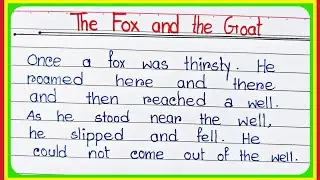 The Fox and the Goat
Once a fox was thirsty. He
roamed here and there
and then reached a well.
As he stood near the well,
he slipped and fell. He
could not come out of the well.